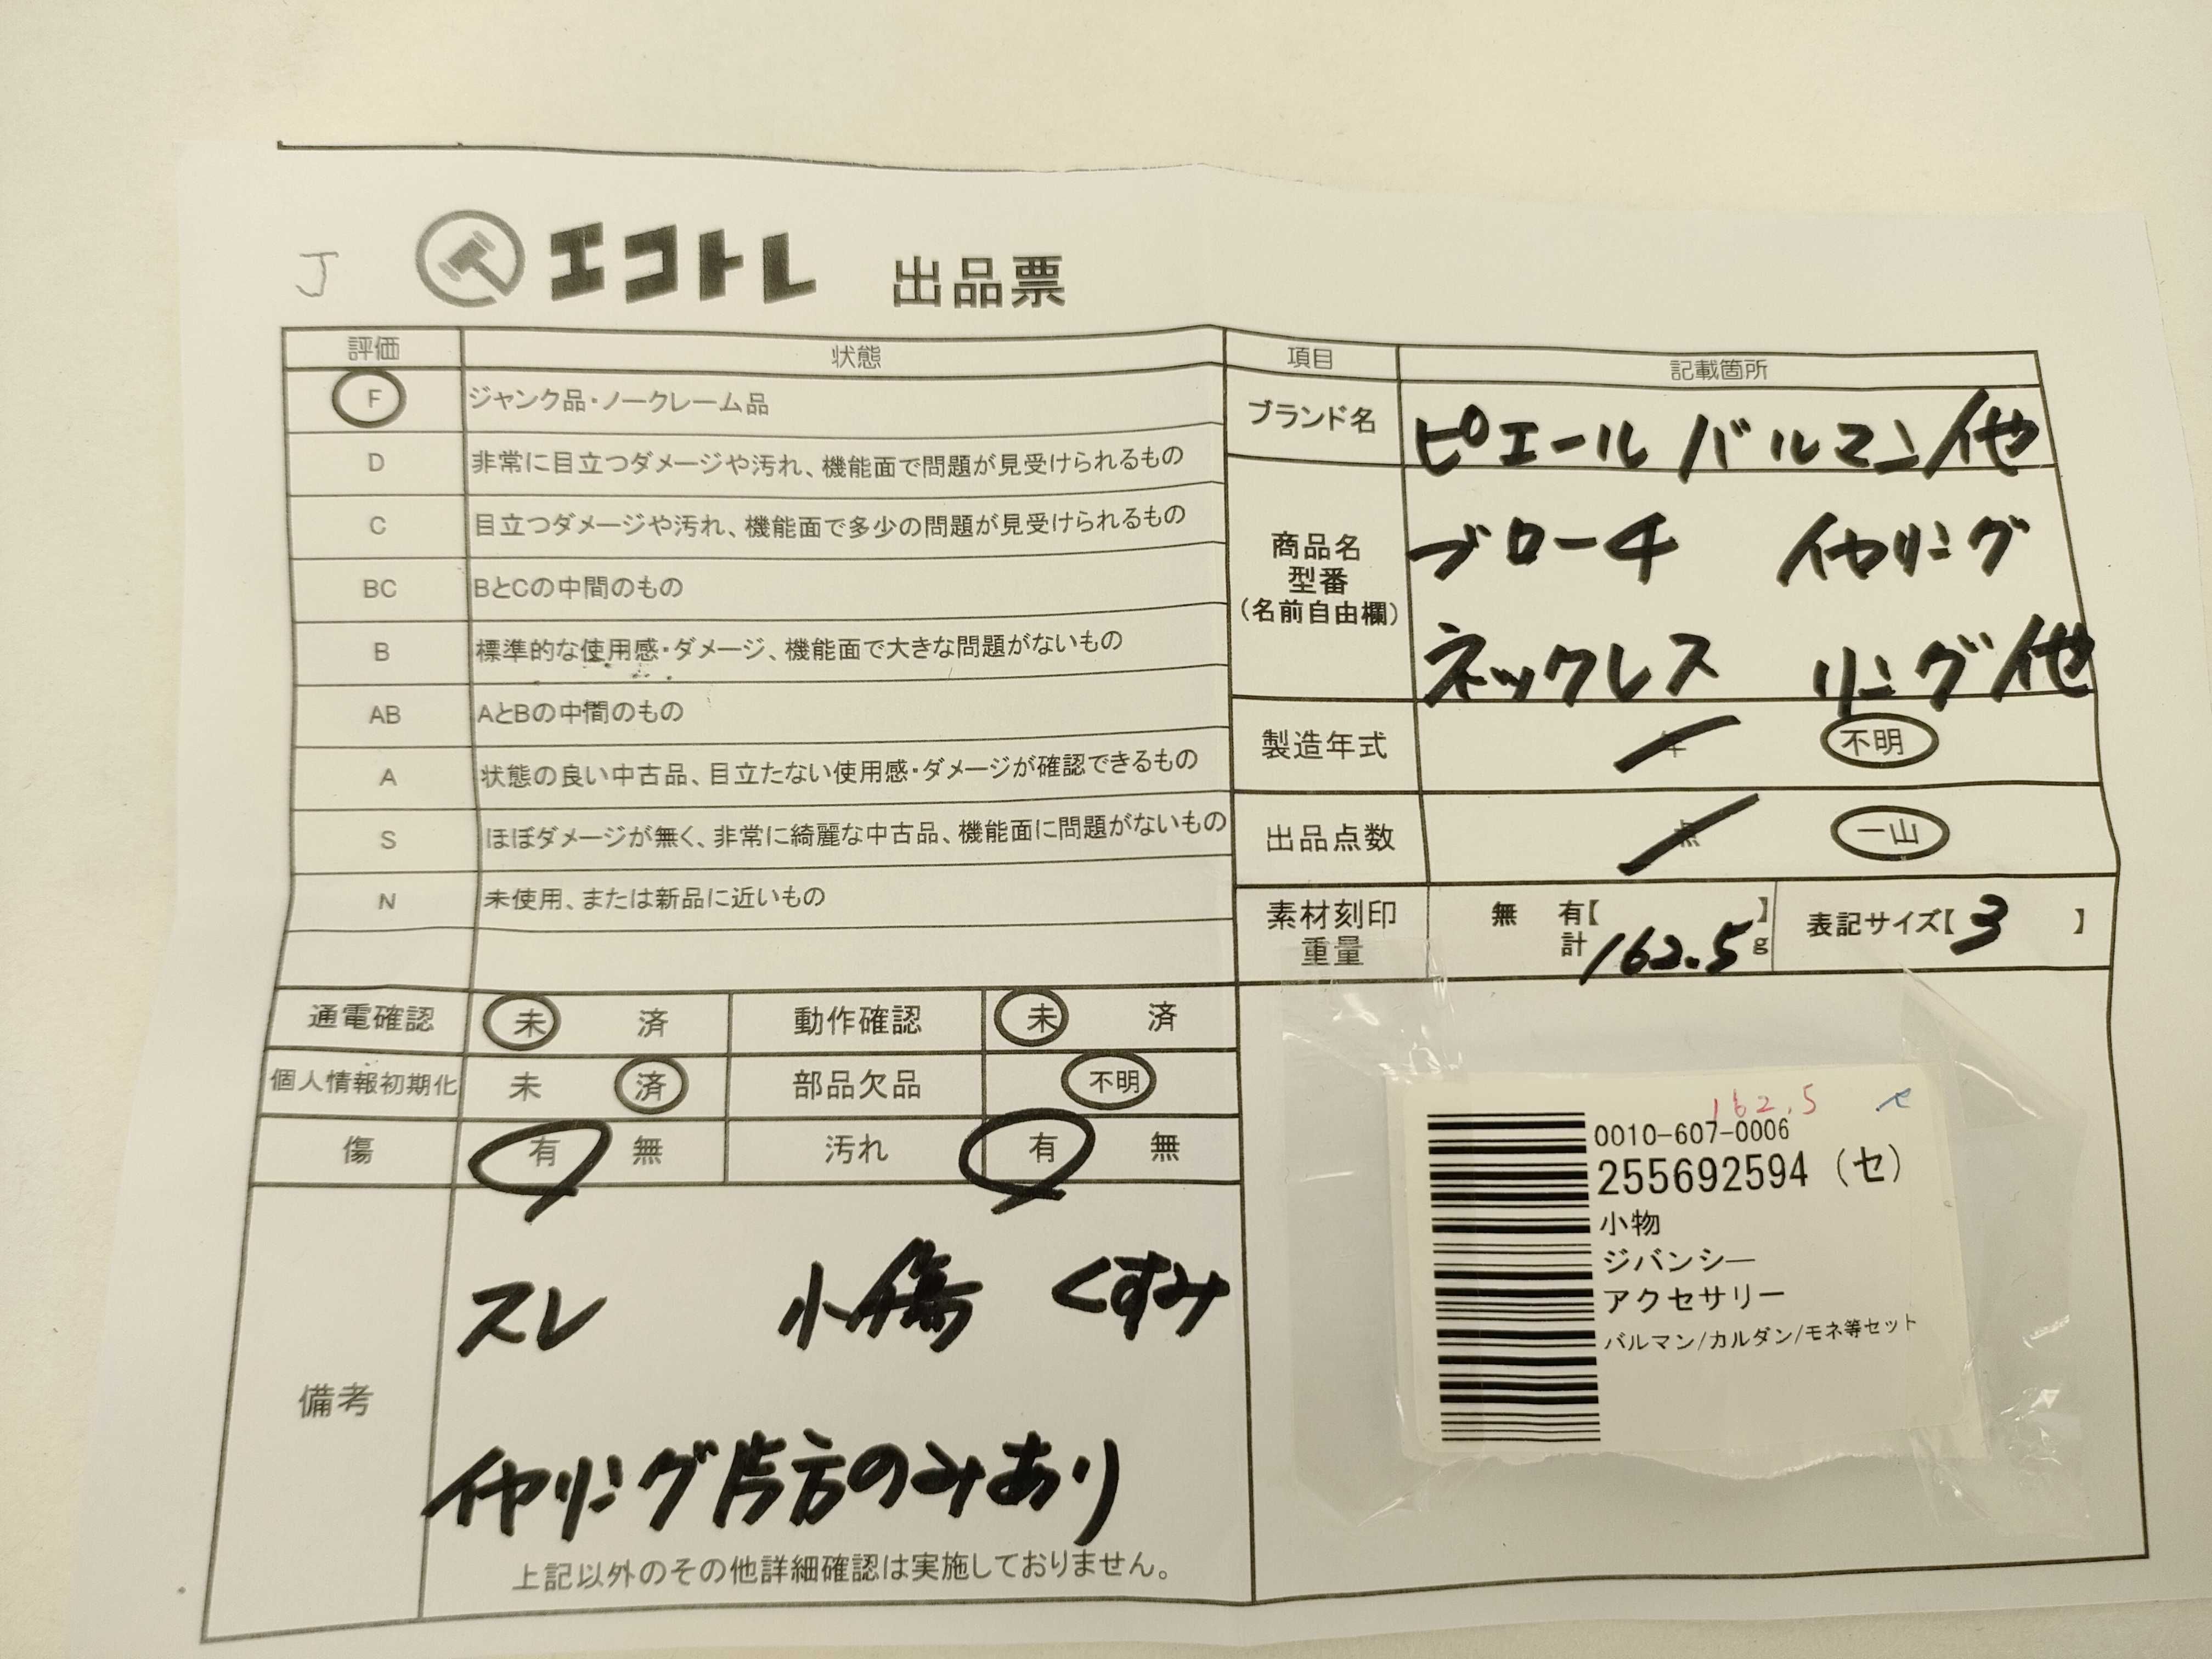 J エコトレ 出品票
評価 状態 項目 記載箇所
F ジャンク品・ノークレーム品
D 非常に目立つダメージや汚れ、機能面で問題が見受けられるもの
C 目立つダメージや汚れ、機能面で多少の問題が見受けられるもの
BC BとCの中間のもの
B 標準的な使用感・ダメージ、機能面で大きな問題がないもの
AB AとBの中間のもの
A 状態の良い中古品、目立たない使用感・ダメージが確認できるもの
S ほぼダメージが無く、非常に綺麗な中古品、機能面に問題がないもの
N 未使用、または新品に近いもの
ブランド名 ピエール バルマン/他
商品名
型番
(名前自由欄)
ブローチ イヤリング
ネックレス リング/他
製造年式 年 不明
出品点数 点 一山
素材刻印
重量
無 有【 】
計 162.5 g
表記サイズ【 3 】
通電確認 未 済 動作確認 未 済
個人情報初期化 未 済 部品欠品 不明
傷 有 無 汚れ 有 無
備考
スレ 小傷 くすみ
イヤリング片方のみあり
上記以外のその他詳細確認は実施しておりません。
162.5
0010-607-0006
255692594 (セ)
小物
ジバンシー
アクセサリー
バルマン/カルダン/モネ等セット